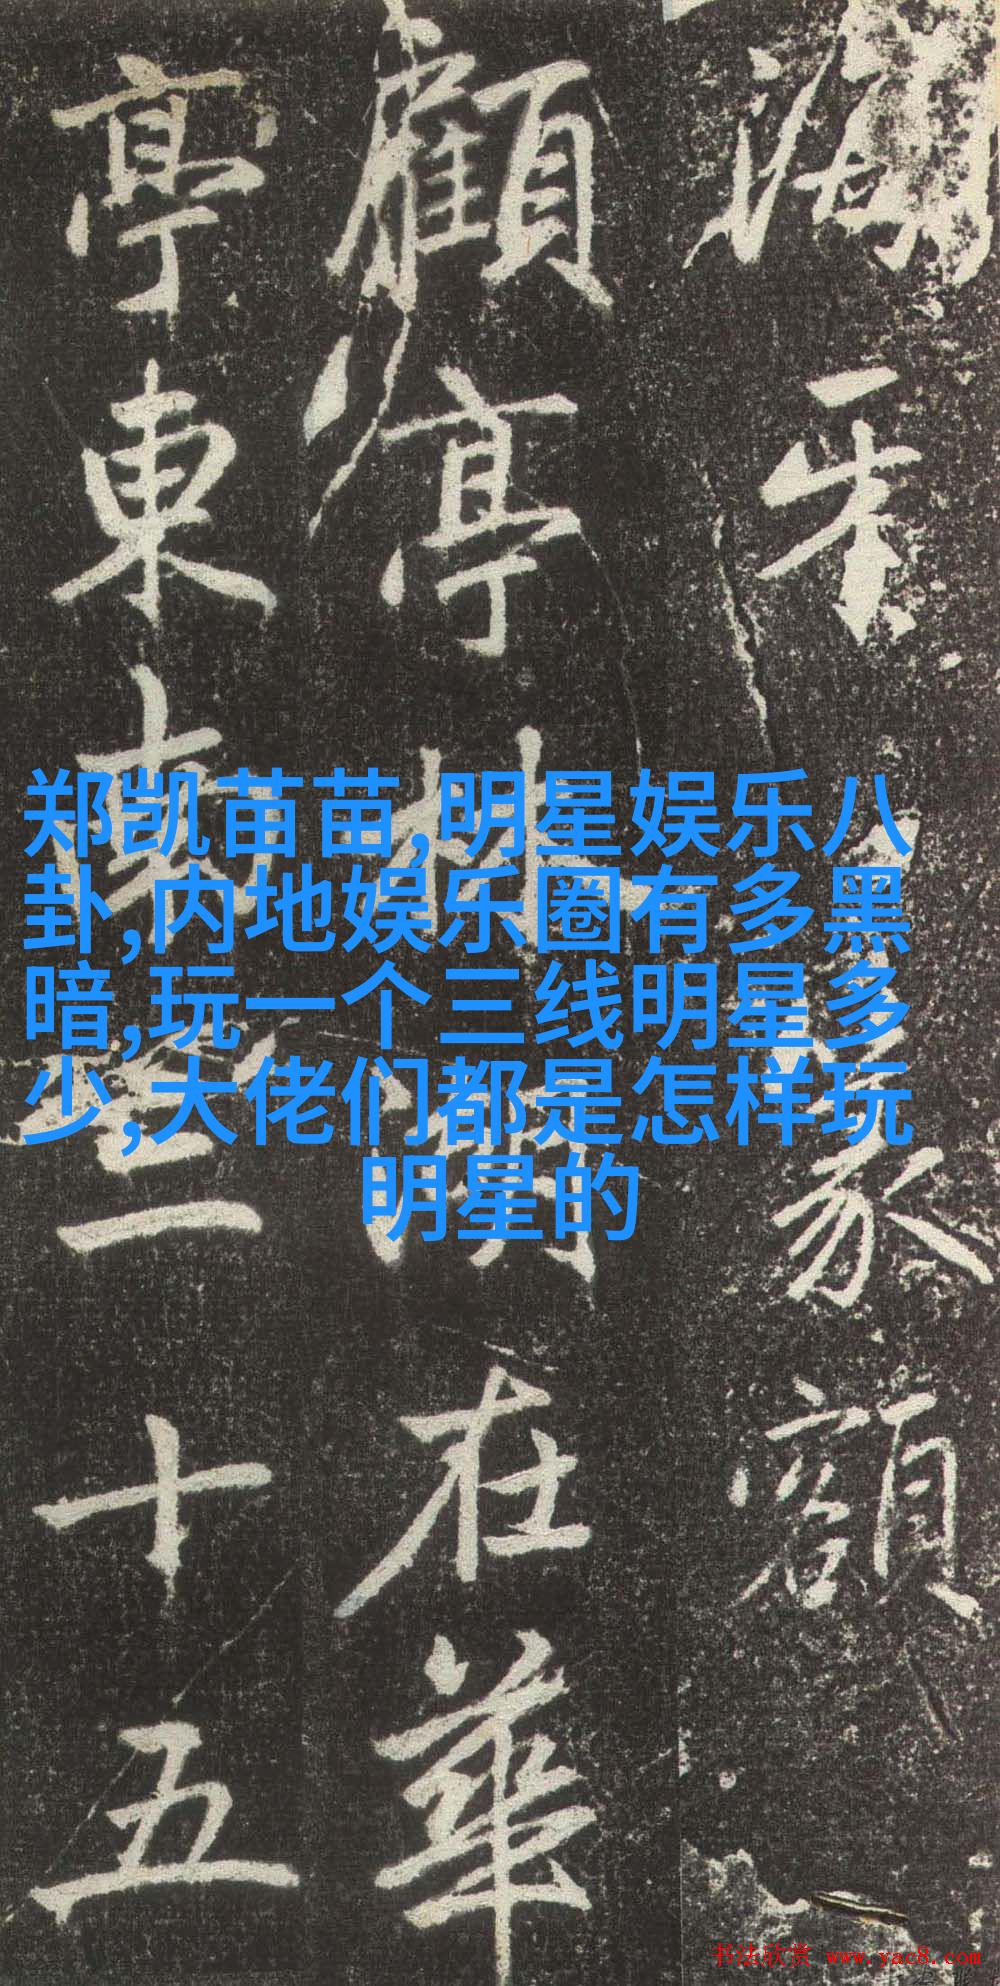 篆額
顧亭林湖在華
亭東南三十五
郑凯苗苗,明星娱乐八
卦,内地娱乐圈有多黑
暗,玩一个三线明星多
少,大佬们都是怎样玩
明星的
书法欣赏 www.yac8.com